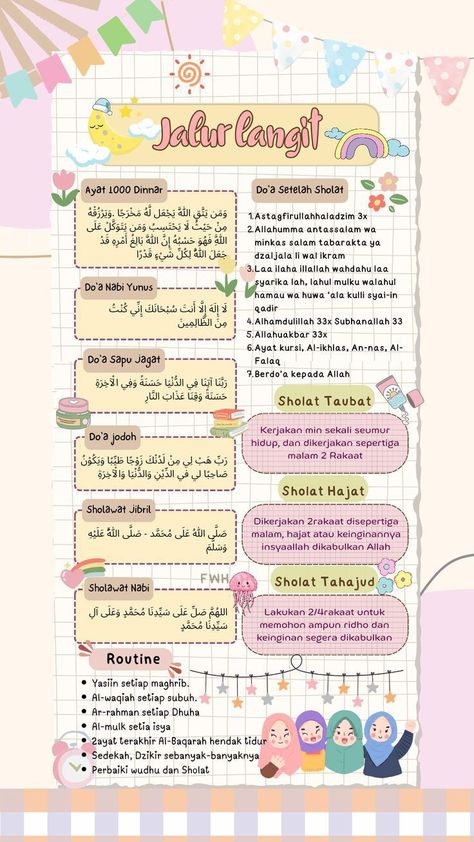 Jalur langit
Ayat 1000 Dinnar
وَمَن يَتَّقِ اللَّهَ يَجْعَل لَّهُ مَخْرَجًا .وَيَرْزُقْهُ
مِنْ حَيْثُ لَا يَحْتَسِبُ وَمَن يَتَوَكَّلْ عَلَى
اللَّهِ فَهُوَ حَسْبُهُ إِنَّ اللَّهَ بَالِغُ أَمْرِهِ قَدْ
جَعَلَ اللَّهُ لِكُلِّ شَيْءٍ قَدْرًا
Do'a Nabi Yunus
لَا إِلَهَ إِلَّا أَنتَ سُبْحَانَكَ إِنِّي كُنْتُ
مِنَ الظَّالِمِينَ
Do'a Sapu Jagat
رَبَّنَا آتِنَا فِي الدُّنْيَا حَسَنَةً وَفِي الْآخِرَةِ
حَسَنَةً وَقِنَا عَذَابَ النَّارِ
Do'a jodoh
رَبِّ هَبْ لِي مِنْ لَدُنْكَ زَوْجًا طَيِّبًا وَيَكُوْنُ
صَاحِبًا لِي فِي الدِّيْنِ وَالدُّنْيَا وَالْآخِرَةِ
Sholawat Jibril
صَلَّى اللهُ عَلَى مُحَمَّد - صَلَّى اللهُ عَلَيْهِ
وَسَلَّمَ
Sholawat Nabi
اللهُمَّ صَلِّ عَلَى سَيِّدِنَا مُحَمَّدٍ وَعَلَى آلِ
سَيِّدِنَا مُحَمَّدٍ
Do'a Setelah Sholat
1.Astagfirullahhaladzim 3x
2.Allahumma antassalam wa
minkas salam tabarakta ya
dzaljala li wal ikram
3.Laa ilaha illallah wahdahu laa
syarika lah, lahul mulku walahul
hamau wa huwa 'ala kulli syai-in
qadir
4.Alhamdulillah 33x Subhanallah 33
5.Allahuakbar 33x
6.Ayat kursi, Al-ikhlas, An-nas, Al-
Falaq
7.Berdo'a kepada Allah
Sholat Taubat
Kerjakan min sekali seumur
hidup, dan dikerjakan sepertiga
malam 2 Rakaat
Sholat Hajat
Dikerjakan 2rakaat disepertiga
malam, hajat atau keinginannya
insyaallah dikabulkan Allah
FWH
Sholat Tahajud
Lakukan 2/4rakaat untuk
memohon ampun ridho dan
keinginan segera dikabulkan
Routine
Yasiin setiap maghrib.
Al-waqiah setiap subuh.
Ar-rahman setiap Dhuha
Al-mulk setia isya
2ayat terakhir Al-Baqarah hendak tidur
Sedekah, Dzikir sebanyak-banyaknya
Perbaiki wudhu dan Sholat